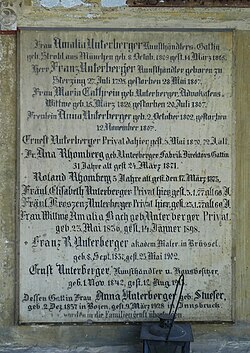 Frau Amalia Unterberger Kunsthändlers-Gattin
geb. Strobl aus München geb. 8 Octob. 1809 gest. 14 März 1865.
Herr Franz Unterberger Kunsthändler geboren zu
Sterzing 27 Juli 1795 gestorben 28 Mai 1867.
Frau Maria Cathrein geb. Unterberger, Advokatens-
Wittwe geb. 15. März 1828 gestorben 20 Juli 1867.
Fräulein Anna Unterberger geb. 2. October 1802, gestorben
12. November 1867.
Ernest Unterberger Privat dahier, gest. 5. Mai 1870, 72 J. alt.
Fr. Ana Rhomberg geb. Unterberger Fabrik Direktors Gattin
31 Jahre alt gest. 24 März 1871.
Roland Rhomberg 5 Jahre alt gest. 17. März 1875.
Fräul. Elisabeth Unterberger Privat hier, gest.
Fräul. Kreszenz Unterberger Privat. hier, gest.
Frau Wittwe Amalia Bach geb. Unterberger Privat.
geb. 23. Mai 1836, gest. 14. Jänner 1898.
Franz R. Unterberger akadem Maler in Brüssel.
geb. 8. Sept. 1837, gest. 25 Mai 1902.
Ernst Unterberger, Kunsthändler u. Hausbesitzer,
geb. 1. Nov 1842, gest. 12. Aug.
Dessen Gattin Frau Anna Unterberger geb. Stueser,
geb. 2. Dez 1857 in Bozen, gest. 9. März 1928 in Innsbruck.
wurden in die Familiengruft